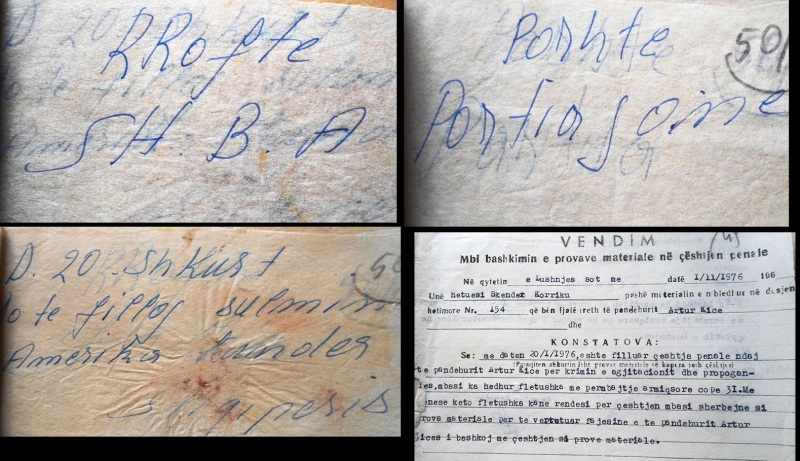 RRofte
SH. B. A
Poshte
Partia j one
50
D. 20 Shkurt
do te filloj sulmin
Amerika kunder
Shqiperis
VENDIM
Mbi bashkimin e provave materiale në çështjen penale
Në qytetin e Lushnjes sot me datë 1/11/1976 196
Unë hetuesi Skender Korriku pashë materialin e mbledhur në dosjen
hetimore Nr. 154 që bën fjalë rreth të pandehurit Artur Sice
dhe
KONSTATOVA:
Se: me daten 20/1/1976, eshte filluar çeshtja penale ndaj
(Paraqiten shkurtimisht provat materiale të kapura rreth çështjes)
te pandehurit Artur Sice per krimin e agjitacionit dhe propogan-
des, mbasi ka hedhur fletushka me permbajtje armiqsore cope 31. Me
qenese keto fletushka kane rendesi per çeshtjen mbasi sherbejne si
prova materiale per te vertetuar fajesine e te pandehurit Artur
Sices i bashkoj me çeshtjen si prove materiale.